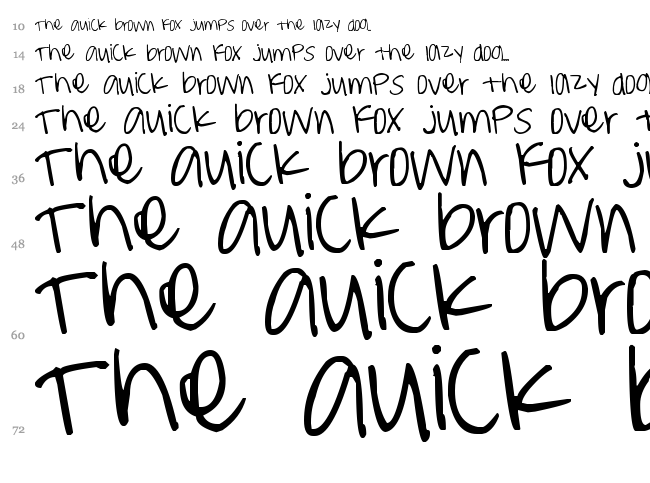 10 The quick brown fox jumps over the lazy dog.
14 The quick brown fox jumps over the lazy dog.
18 The quick brown fox jumps over the lazy dog
24 The quick brown fox jumps over t
36 The quick brown fox ju
48 The quick brown
60 The quick bro
72 The quick b